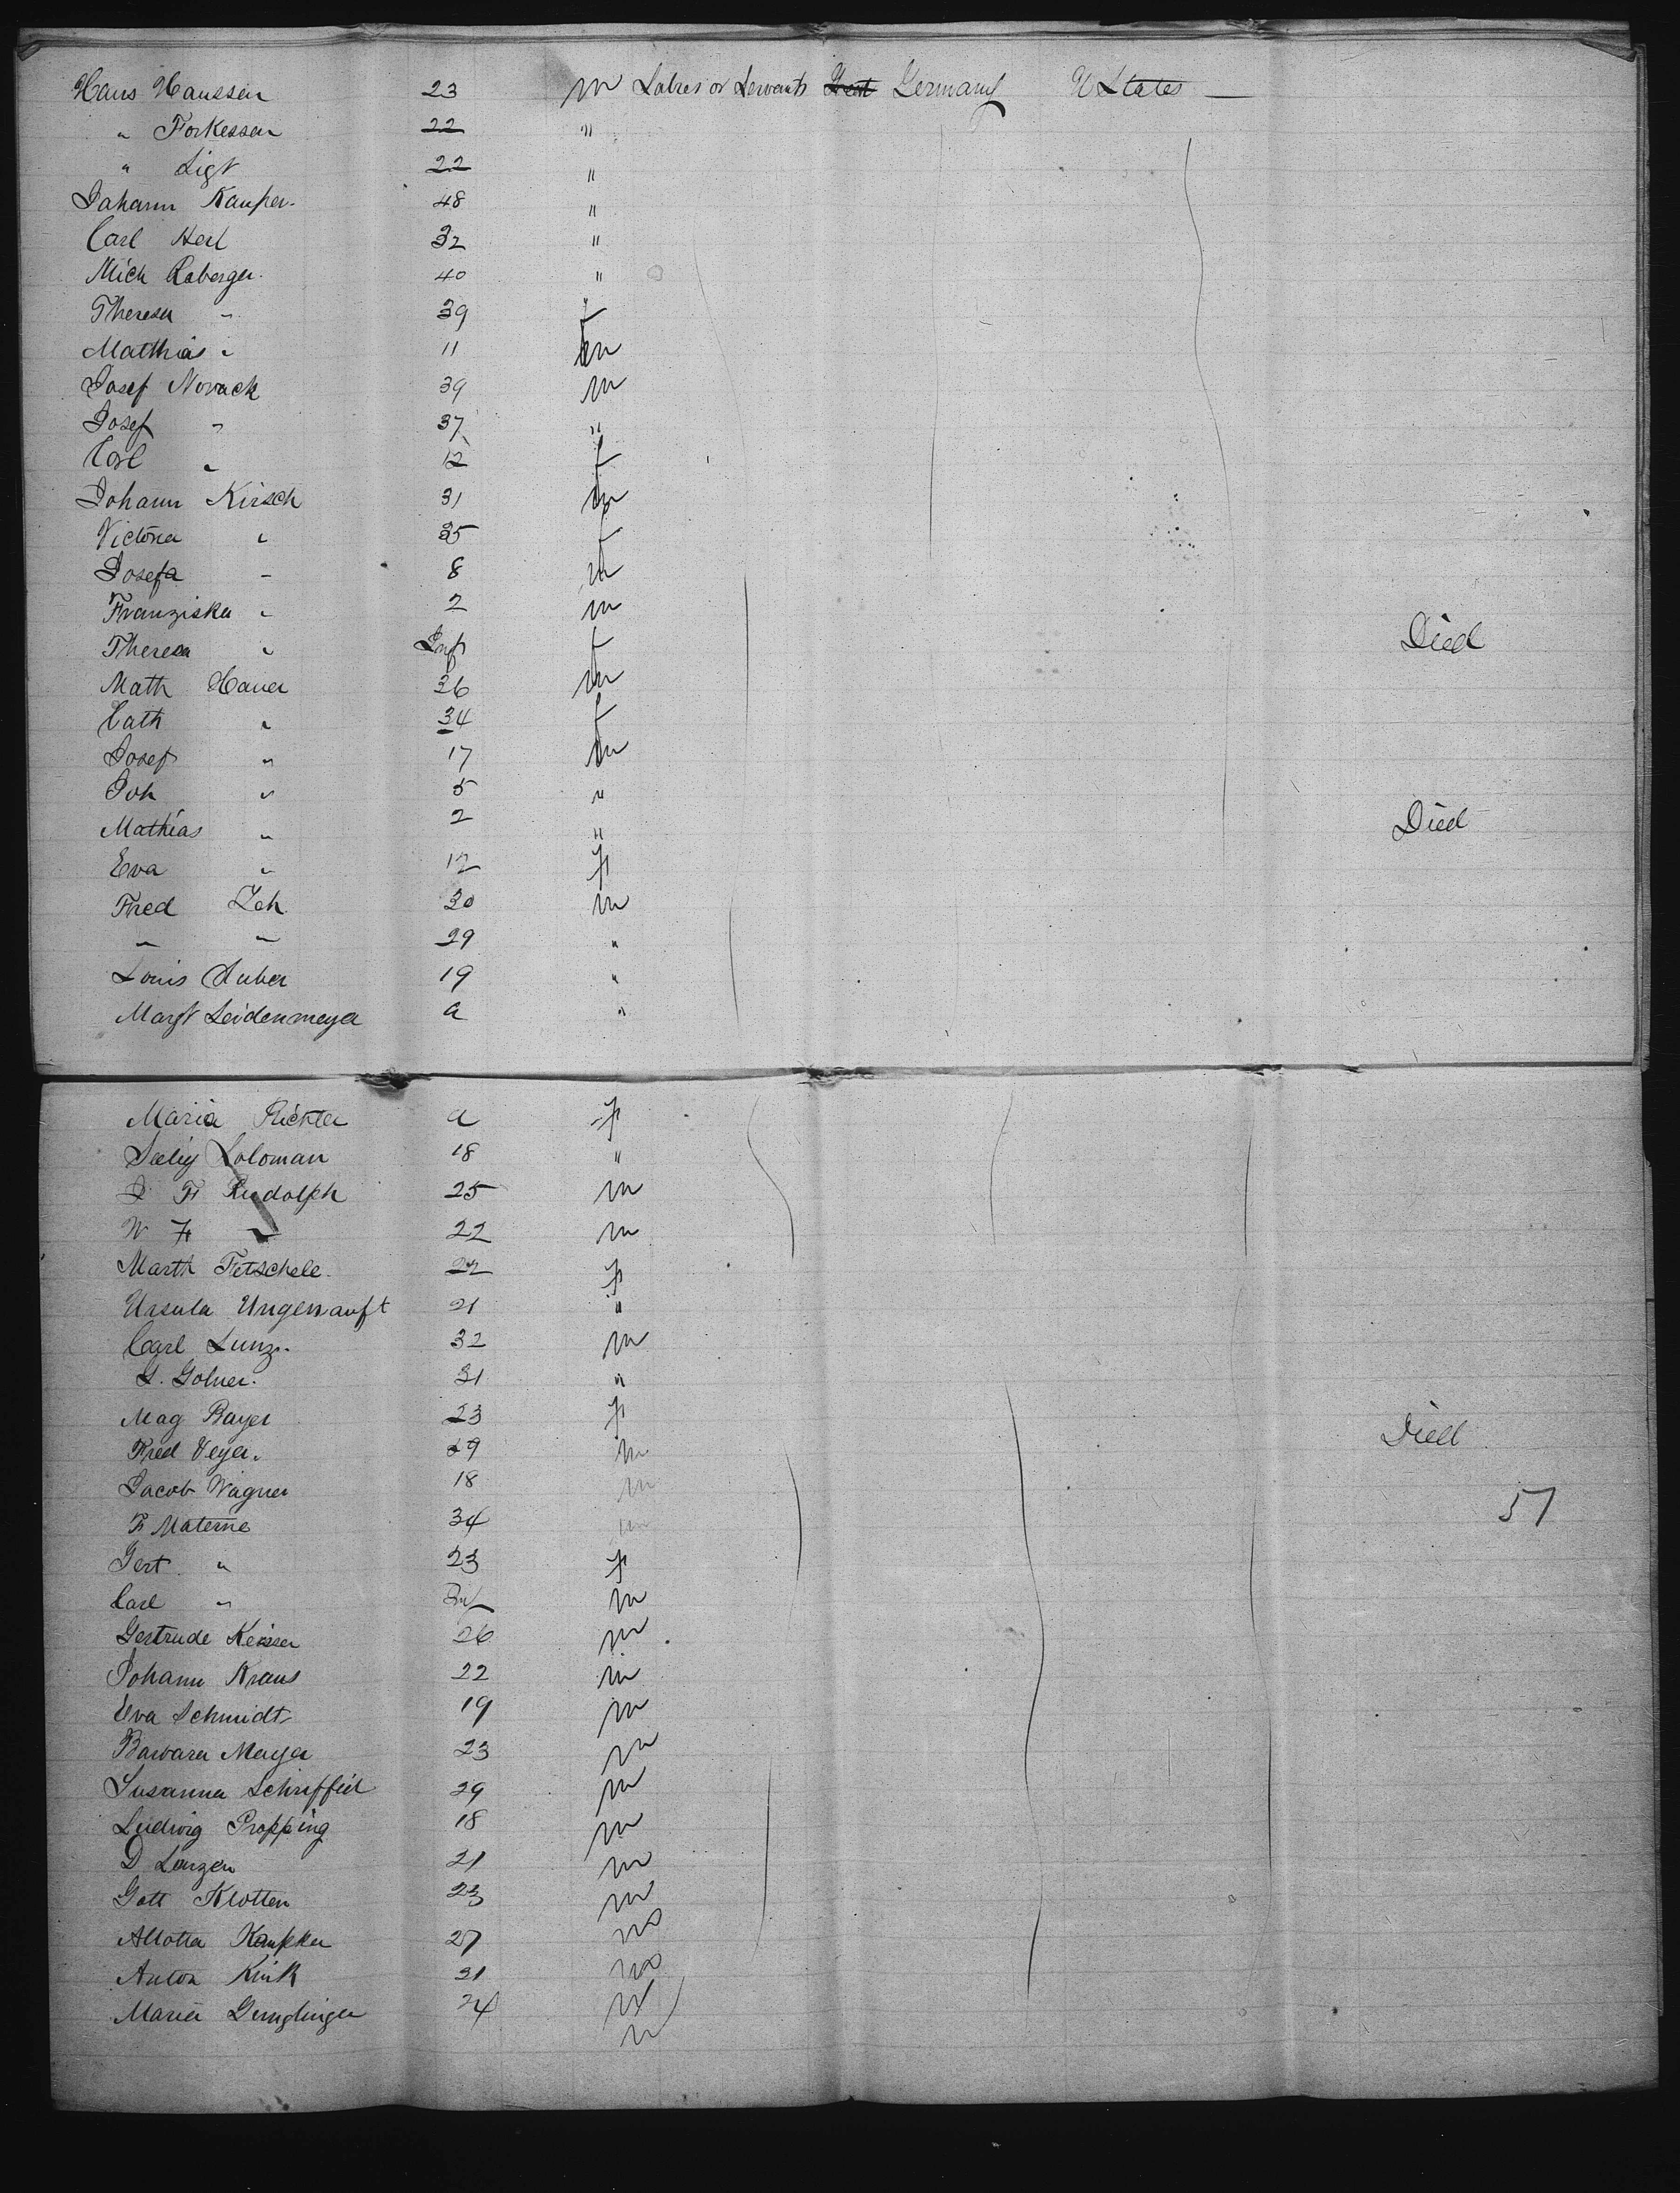 Hans Haussen 23 m Labrs or Servants Germany U States —
" Forkessen 22 "
" Ligt 22 "
Johann Kauper. 48 "
Carl Herl 32 "
Mich Raberger. 40 "
Theresa " 39 f
Matthias " 11 m
Josef Novack 39 m
Josef " 37 "
Carl " 12 f
Johann Kirsch 31 m
Victoria " 35 f
Josefa " 8 m
Franziska " 2 m
Theresa " Inf f Died
Math Hauer 36 m
Cath " 34 f
Josef " 17 m
Joh " 5 "
Mathias " 2 " Died
Eva " 12 f
Fred Zeh 30 m
" " 29 "
Louis Huber 19 "
Margt Leidenmeyer a "
Maria Richter a f
Seelig Soloman 18 "
J Fr Rudolph 25 m
W Fr " 22 m
Marth Fetschele. 22 f
Ursula Ungenauft 21 "
Carl Lunz. 32 m
G. Golner. 31 "
Mag Bayer 23 f Died
Fred Veyer. 29 m
Jacob Wagner 18 m
57
Fr Materne 34 m
Gert " 23 f
Carl " Inf m
Gertrude Keisser 26 m
Johann Kraus 22 m
Eva Schmidt 19 m
Barbara Mayer 23 m
Susanna 29 m
Ludwig Propping 18 m
D Lanzen 21 m
Gott Klotten 23 m
27 m
Anton Kink 21 m
Maria 24 m
m